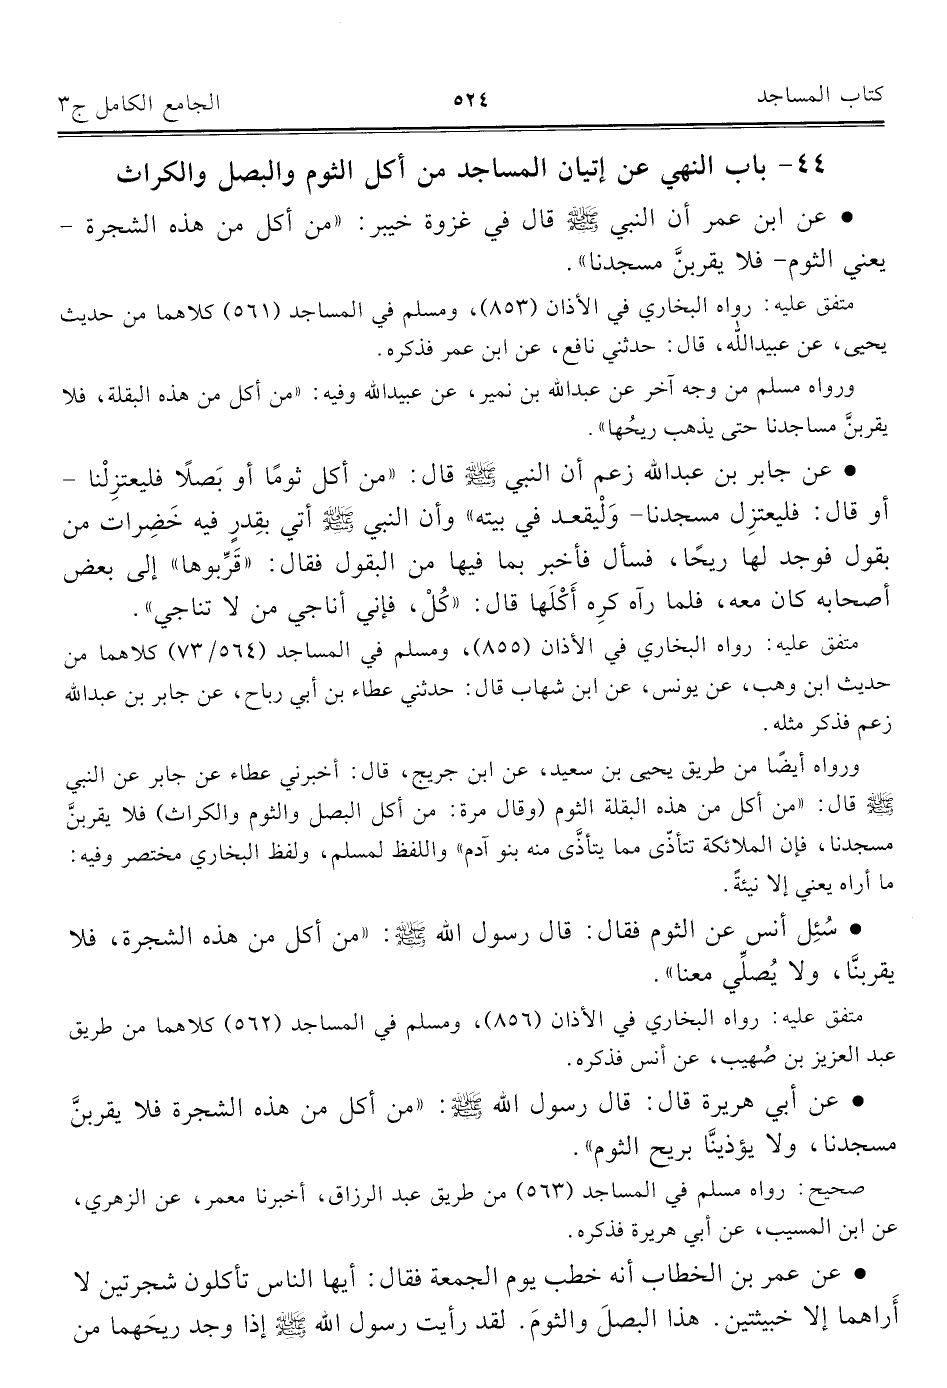 كتاب المساجد ٥٢٤ الجامع الكامل ج٣
٤٤- باب النهي عن إتيان المساجد من أكل الثوم والبصل والكراث
• عن ابن عمر أن النبي ﷺ قال في غزوة خيبر: «من أكل من هذه الشجرة -
يعني الثوم- فلا يقربنَّ مسجدنا».
متفق عليه: رواه البخاري في الأذان (٨٥٣)، ومسلم في المساجد (٥٦١) كلاهما من حديث
يحيى، عن عبيدالله، قال: حدثني نافع، عن ابن عمر فذكره.
ورواه مسلم من وجه آخر عن عبدالله بن نمير، عن عبيدالله وفيه: «من أكل من هذه البقلة، فلا
يقربنَّ مساجدنا حتى يذهب ريحُها».
• عن جابر بن عبدالله زعم أن النبي ﷺ قال: «من أكل ثومًا أو بَصلًا فليعتزِلْنا -
أو قال: فليعتزِل مسجدنا- وَلْيقعد في بيته» وأن النبي ﷺ أتي بقِدرٍ فيه خَضِرات من
بقول فوجد لها ريحًا، فسأل فأخبر بما فيها من البقول فقال: «قَرِّبوها» إلى بعض
أصحابه كان معه، فلما رآه كرِه أَكْلَها قال: «كُلْ، فإني أناجي من لا تناجي».
متفق عليه: رواه البخاري في الأذان (٨٥٥)، ومسلم في المساجد (٥٦٤/٧٣) كلاهما من
حديث ابن وهب، عن يونس، عن ابن شهاب قال: حدثني عطاء بن أبي رباح، عن جابر بن عبدالله
زعم فذكر مثله.
ورواه أيضًا من طريق يحيى بن سعيد، عن ابن جريج، قال: أخبرني عطاء عن جابر عن النبي
ﷺ قال: «من أكل من هذه البقلة الثوم (وقال مرة: من أكل البصل والثوم والكراث) فلا يقربنَّ
مسجدنا، فإن الملائكة تتأذى مما يتأذَّى منه بنو آدم» واللفظ لمسلم، ولفظ البخاري مختصر وفيه:
ما أراه يعني إلا نيئةً.
• سُئِل أنس عن الثوم فقال: قال رسول الله ﷺ: «من أكل من هذه الشجرة، فلا
يقربنَّا، ولا يُصلِّي معنا».
متفق عليه: رواه البخاري في الأذان (٨٥٦)، ومسلم في المساجد (٥٦٢) كلاهما من طريق
عبد العزيز بن صُهيب، عن أنس فذكره.
• عن أبي هريرة قال: قال رسول الله ﷺ: «من أكل من هذه الشجرة فلا يقربنَّ
مسجدنا، ولا يؤذينَّا بريح الثوم».
صحيح: رواه مسلم في المساجد (٥٦٣) من طريق عبد الرزاق، أخبرنا معمر، عن الزهري،
عن ابن المسيب، عن أبي هريرة فذكره.
• عن عمر بن الخطاب أنه خطب يوم الجمعة فقال: أيها الناس تأكلون شجرتين لا
أَراهما إلا خبيثتين. هذا البصلَ والثومَ. لقد رأيت رسول الله ﷺ إذا وجد ريحَهما من